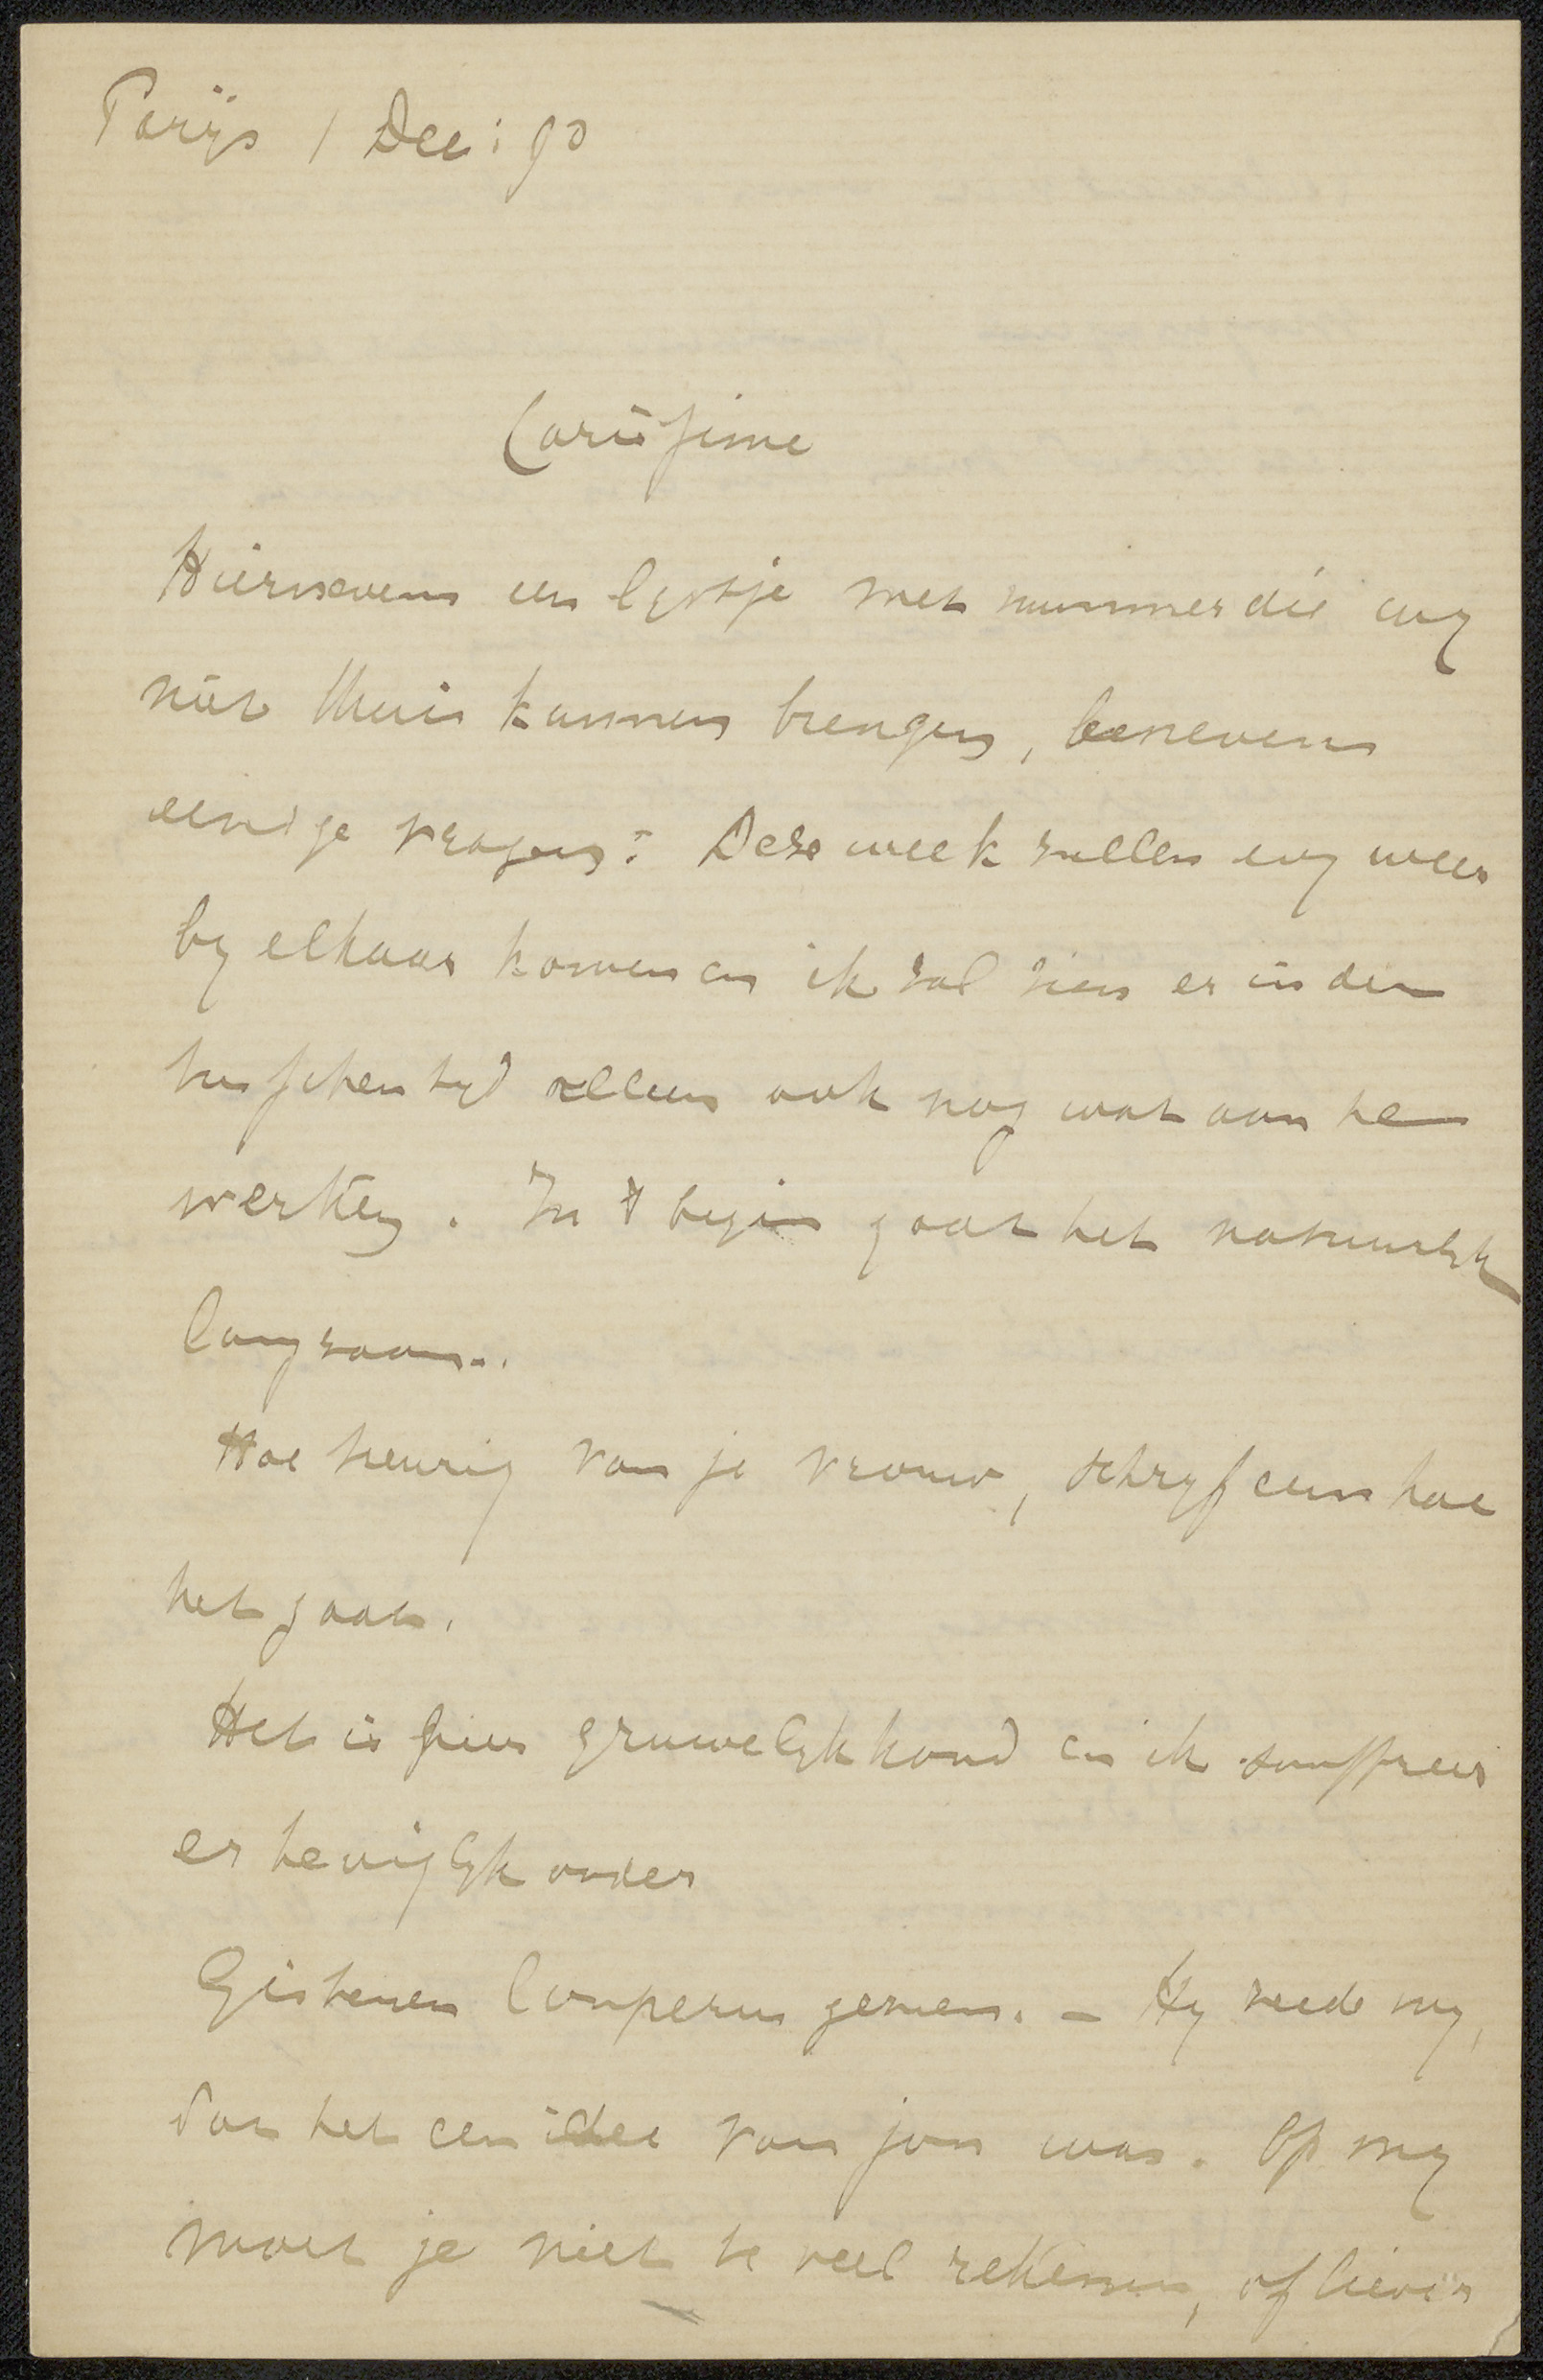 Parijs 1 Dec: 90
Carissime
Hiernevens een lystje met nummer die wy
niet thuis kunnen brengen, benevens
eenige vragen: Deze week zullen wy weer
by elkaar komen en ik zal zien er in den
tusschentyd alleen ook nog wat aan te
werken. In 't begin gaat het natuurlyk
langzaam.
Hoe treurig van je vrouw, schryf eens hoe
het gaat.
Het is hier gruwelyk koud en ik souffreer
er heviglyk onder
Gisteren Couperus gezien. - Hy zeide my,
dat het een idee van jou was. Op my
moet je niet te veel rekenen, of liever